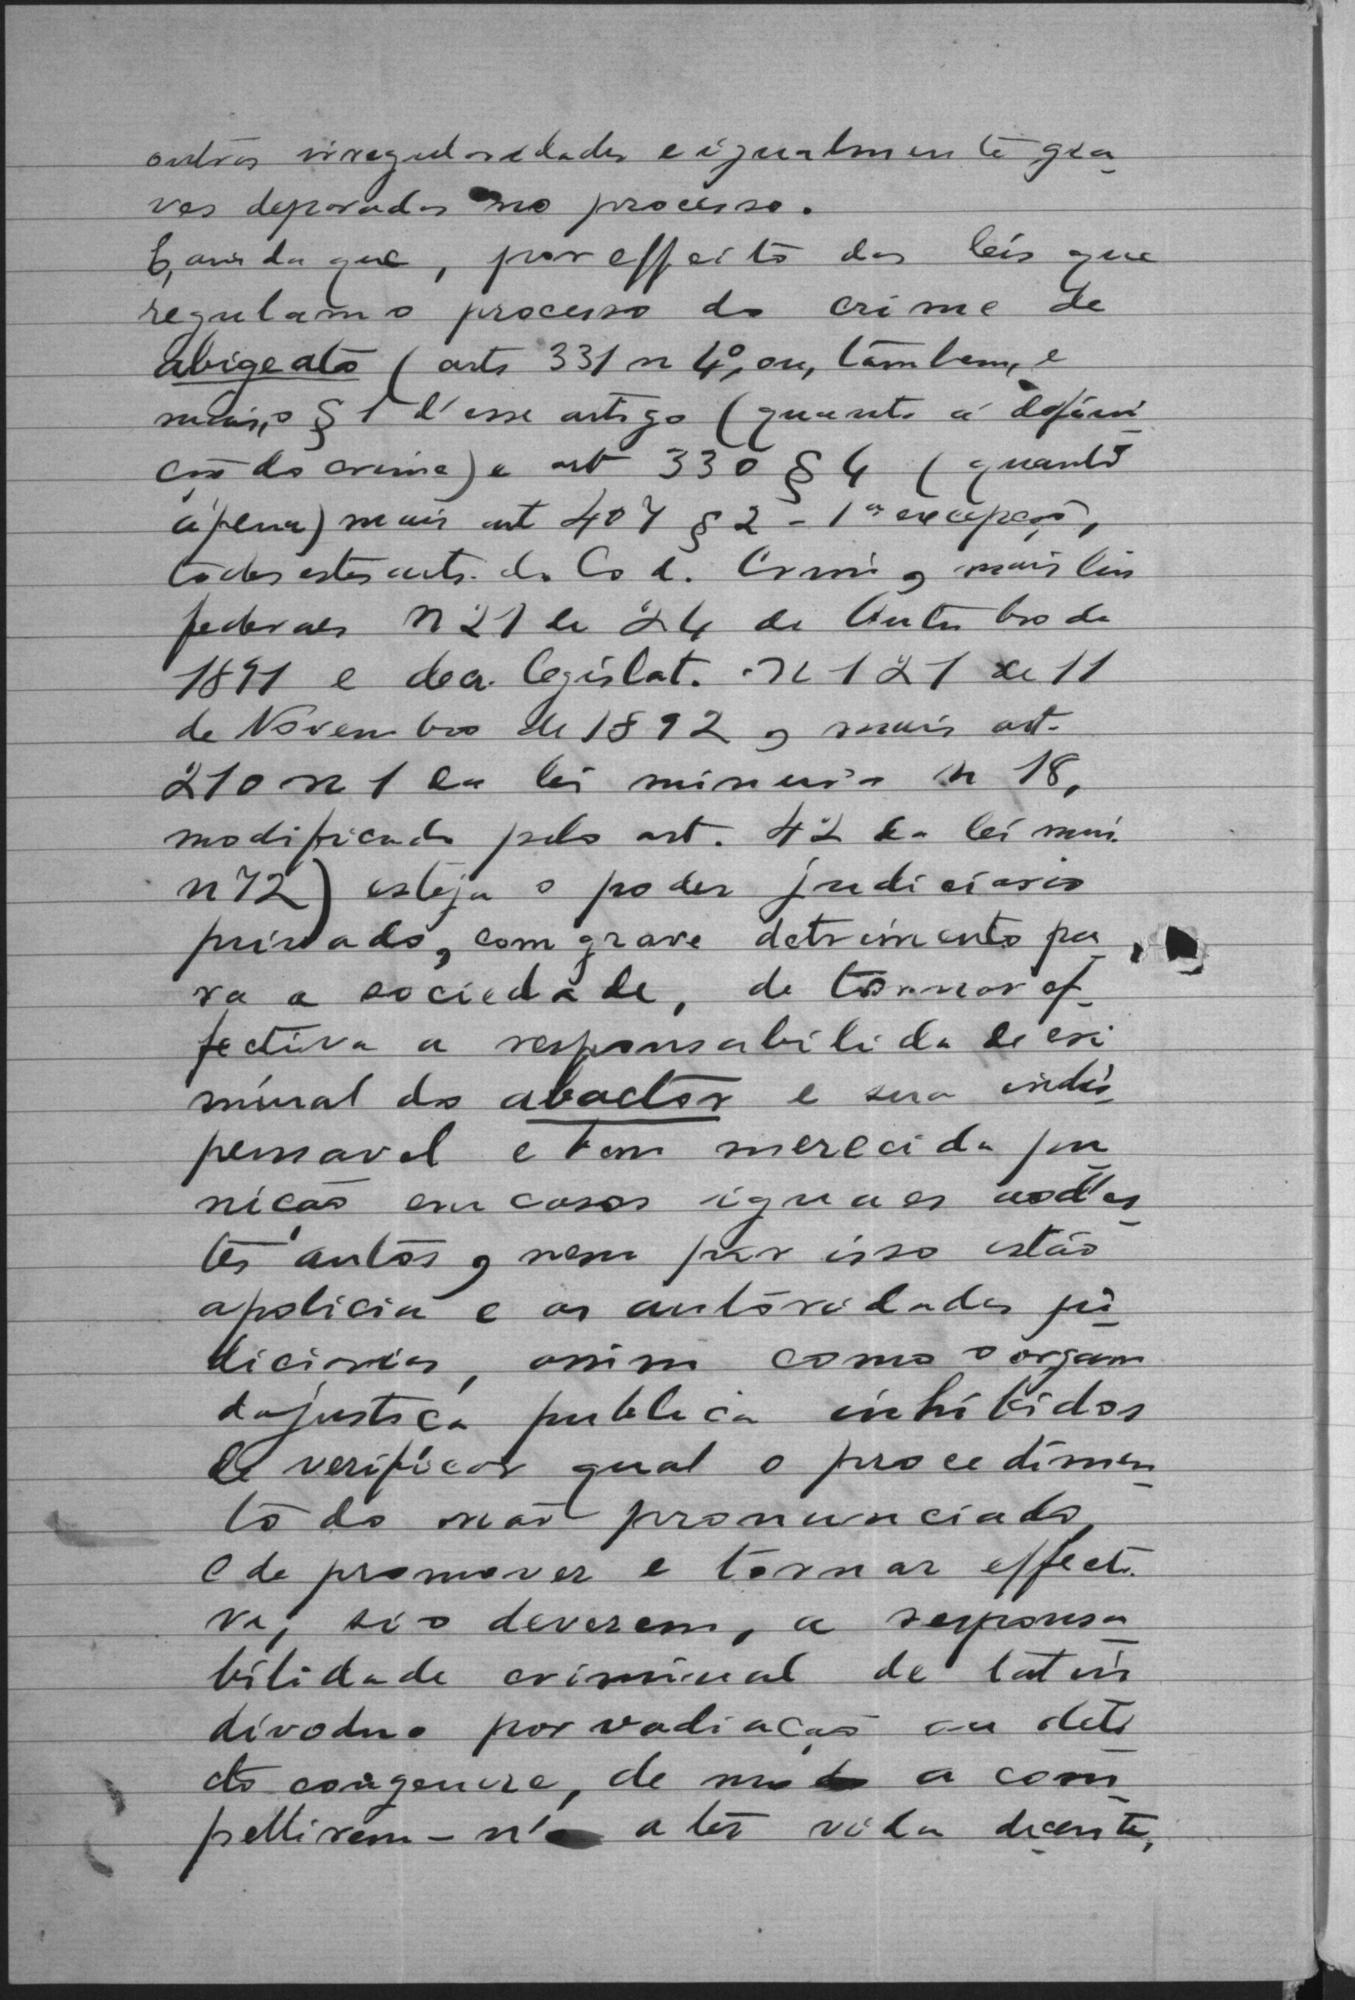 outras irregularidades e igualmente gra-
ves deparadas no processo.
E, ainda que, por effeito das leis que
regulam o processo do crime de
abigeato (arts 331 n 4º, ou, tambem, e
mais, o § 1 d'esse artigo (quanto á defini-
ção do crime) e art 330 § 4 (quanto
á pena) mais art 407 § 2 - 1ª excepção,
todos estes arts. do Cod. Crim, mais leis
federaes n 21 de 24 de Outubro de
1891 e decr. legislat. n 121 de 11
de Novembro de 1892, mais art.
210 n 1 da lei mineira n 18,
modificado pelo art. 42 da lei min.
n 72) esteja o poder judiciario
privado, com grave detrimento pa-
ra a sociedade, de tornar ef-
fectiva a responsabilidade cri
minal do abactor e sua indis-
pensavel e bem merecida pu-
nição em casos iguaes aos des-
tes autos, nem por isso estão
a policia e as autoridades ju-
diciarias, assim como o orgam
da justiça publica inhibidos
de verificar qual o procedimen-
to do não pronunciado,
e de promover e tornar effecti-
va, si o deverem, a responsa
bilidade criminal de tal in
dividuo por vadiação ou deli
cto congenere, de modo a com-
pellirem-n'o a ter vida decente,